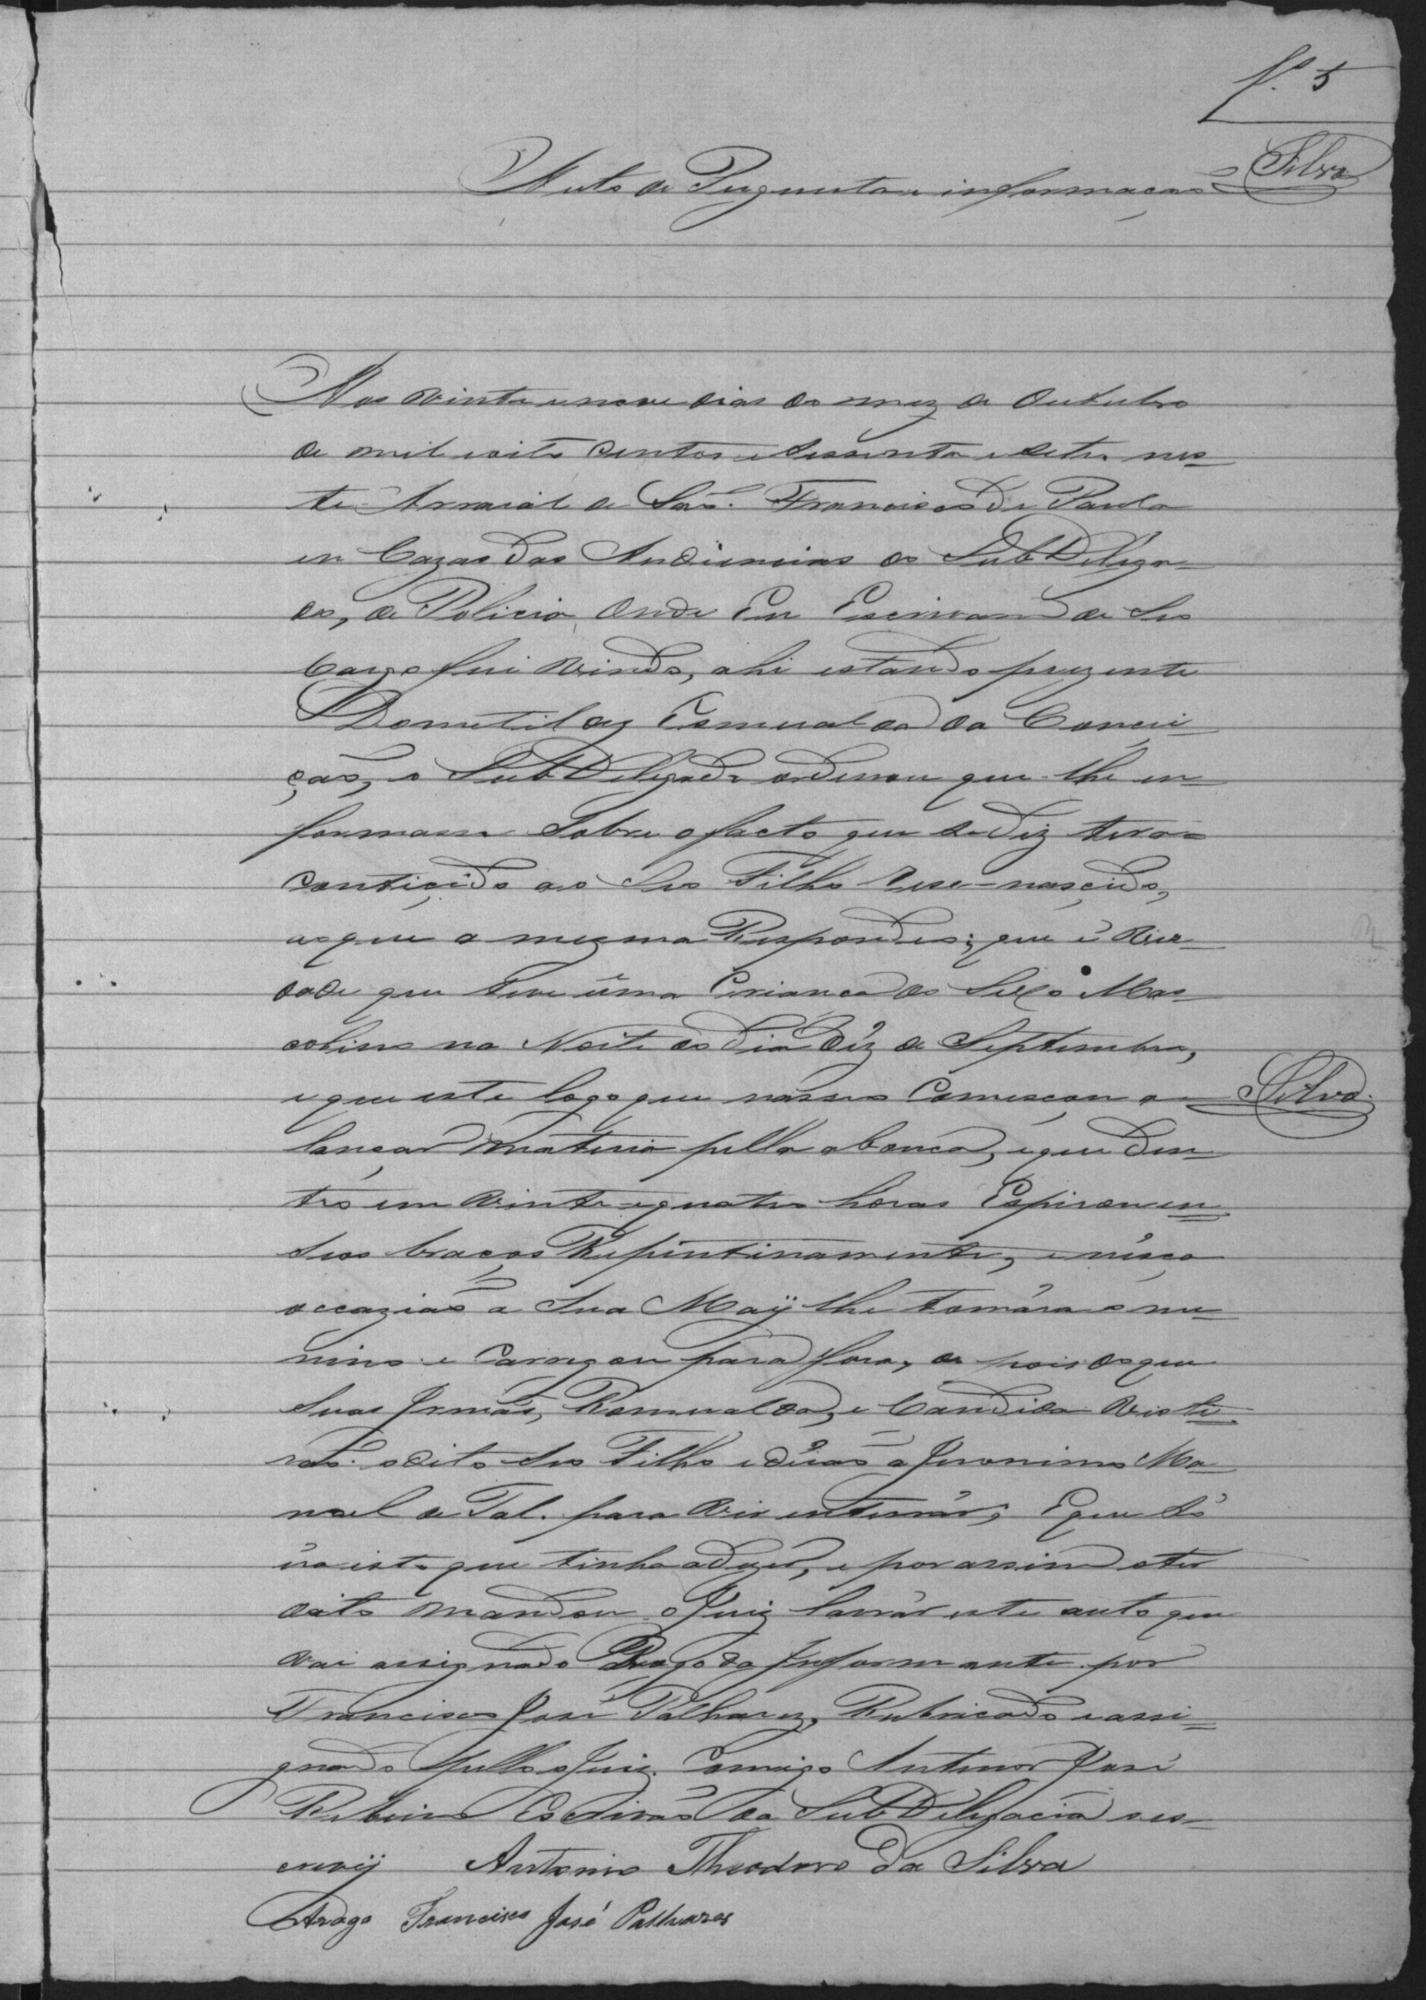 f. 5
Silva
Auto de Pergunta e informação
Aos vinte e nove dias do mez de Outubro
de mil e oito centos e sessenta e sete nes=
te Arraial de São. Francisco de Paula
em Cazas das Audiencias do SubDelega=
do, de Policia, Onde Eu Escrivam de seo
Cargo fui vindo, ahi estando prezente
Esmeralda da Concei=
ção, o SubDelegado ordenou que lhe in=
formasse Sobre o facto que se diz ter a=
contiçido ao Seo Filho rese=nascido,
ao que a mezma Respondeo; que é Ver=
dade que teve uma Criança do Sexo Mas=
colino na Noite do dia Déz de Septembro,
e que este logo que nasseo Comesçou a
lançar materia pella a bouca, e que den=
tro em vinte e quatro horas Espirou em
seos braços Repintinamente, e nésça
occazião a Sua Maÿ lhe tomára o me=
nino e Carregou para fora, de pois do que
Suas Irmãs, Romualda, e Candida visti=
rão o dito seo Filho e dérão a Jeronimo Ma=
noel de Tal. para vir enterrár; E que Só
éra isto que tinha a dizer, e por assim o ter
dito mandou o Juiz lavrár este auto que
vai assignado a Rogo da Informante por
Francisco José Palharez, Rubricado e assi=
gnado pello o Juiz. Comigo Antenor José
Ribeiro Escrivão da SubDelegacia o es=
crevÿ Antonio Theodoro da Silva
Arogo Francisco José Palhares
Silva